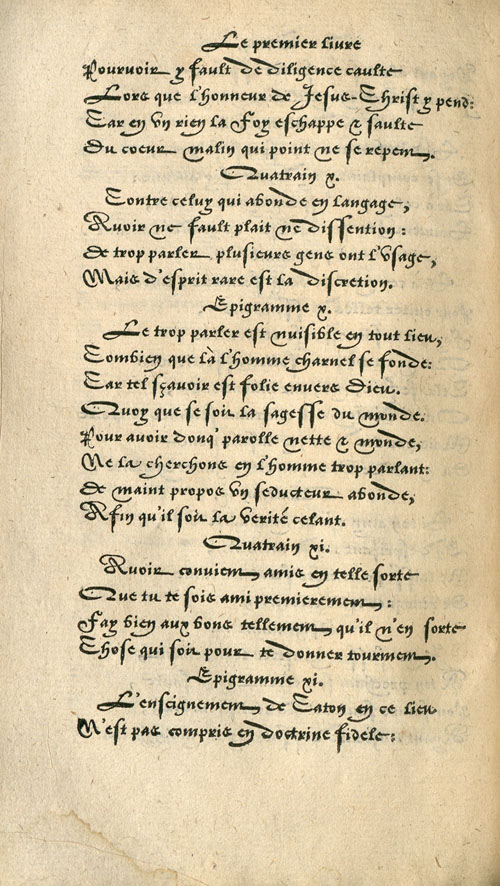 Le premier livre
Pourvoir y fault de diligence caulte
Lors que l'honneur de Jesus-Christ y pend:
Car en vn rien la Foy eschappe & saulte
Du coeur malin qui point ne se repent.
Quatrain x.
Contre celuy qui abonde en langage,
Avoir ne fault plait ne dissention:
De trop parler plusieurs gens ont l'vsage,
Mais d'esprit rare est la discretion.
Epigramme x.
Le trop parler est nuisible en tout lieu,
Combien que là l'homme charnel se fonde:
Car tel sçavoir est folie envers Dieu.
Quoy que se soit la sagesse du monde.
Pour avoir donq' parolle nette & monde,
Ne la cherchons en l'homme trop parlant:
De maint propos vn seducteur abonde,
Afin qu'il soit la verité celant.
Quatrain xi.
Avoir convient amis en telle sorte
Que tu te sois ami premierement:
Fay bien aux bons tellement qu'il n'en sorte
Chose qui soit pour te donner tourment.
Epigramme xi.
L'enseignement de Caton en ce lieu
N'est pas compris en doctrine fidele: